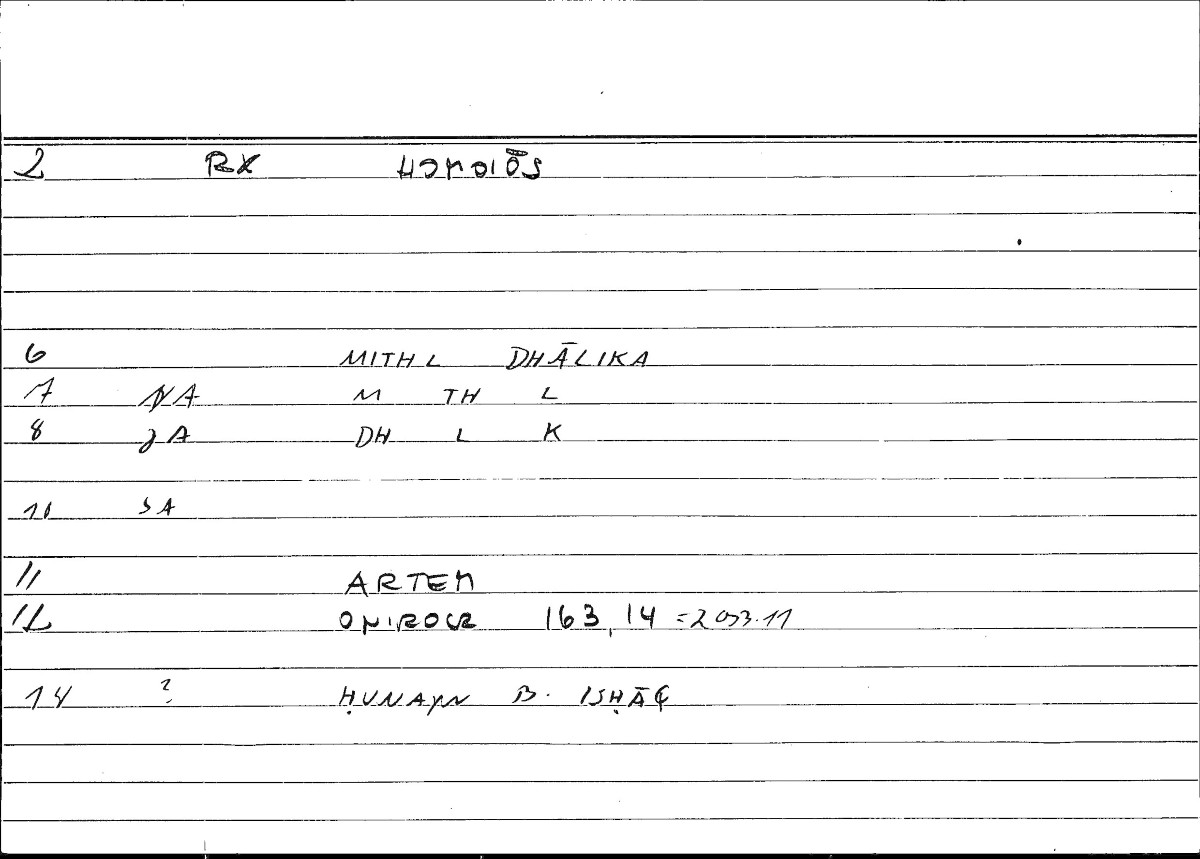 2 RX HOMOIŌS
6 MITHL DHĀLIKA
7 NA M TH L
8 JA DH L K
10 SA
11 ARTEM
12 ONIROCR 163,14 = 11
14 ? ḤUNAYN B. ISḤĀQ